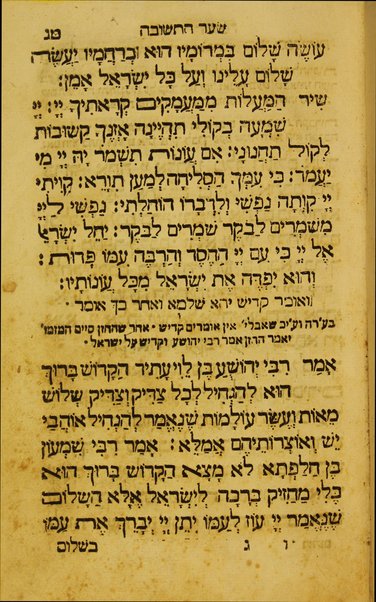 שער התשובה מג
עוֹשֶׂה שָׁלוֹם בִּמְרוֹמָיו הוּא וּבְרַחֲמָיו יַעֲשֶׂה
שָׁלוֹם עָלֵינוּ וְעַל כָּל יִשְׂרָאֵל אָמֵן:
שִׁיר הַמַּעֲלוֹת מִמַּעֲמַקִּים קְרָאתִיךָ יְיָ: יְיָ
שִׁמְעָה בְקוֹלִי תִּהְיֶינָה אָזְנֶיךָ קַשּׁוּבוֹת
לְקוֹל תַּחֲנוּנָי: אִם עֲוֹנוֹת תִּשְׁמָר יָהּ יְיָ מִי
יַעֲמֹד: כִּי עִמְּךָ הַסְּלִיחָה לְמַעַן תִּוָּרֵא: קִוִּיתִי
יְיָ קִוְּתָה נַפְשִׁי וְלִדְבָרוֹ הוֹחָלְתִּי: נַפְשִׁי לַיְיָ
מִשֹּׁמְרִים לַבֹּקֶר שֹׁמְרִים לַבֹּקֶר: יַחֵל יִשְׂרָאֵל
אֶל יְיָ כִּי עִם יְיָ הַחֶסֶד וְהַרְבֵּה עִמּוֹ פְדוּת:
וְהוּא יִפְדֶּה אֶת יִשְׂרָאֵל מִכֹּל עֲוֹנוֹתָיו:
ואומר קדיש יהא שלמא ואחר כך אומר
בע׳רה וע׳יכ שאבלי׳ אין אומרים קדיש ׳ אחר שהחזן סיים המזמו׳
יאמר החזן אמר רבי יהושע וקדיש על ישראל ׳
אָמַר רַבִּי יְהוֹשֻׁעַ בֶּן לֵוִי עָתִיד הַקָּדוֹשׁ בָּרוּךְ
הוּא לְהַנְחִיל לְכָל צַדִּיק וְצַדִּיק שְׁלוֹשׁ
מֵאוֹת וַעֲשָׂר עוֹלָמוֹת שֶׁנֶּאֱמַר לְהַנְחִיל אוֹהֲבַי
יֵשׁ וְאוֹצְרוֹתֵיהֶם אֲמַלֵּא: אָמַר רַבִּי שִׁמְעוֹן
בֶּן חֲלַפְתָּא לֹא מָצָא הַקָּדוֹשׁ בָּרוּךְ הוּא
כְּלִי מַחֲזִיק בְּרָכָה לְיִשְׂרָאֵל אֶלָּא הַשָּׁלוֹם
שֶׁנֶּאֱמַר יְיָ עוֹז לְעַמּוֹ יִתֵּן יְיָ יְבָרֵךְ אֶת עַמּוֹ
ו ג בשלום